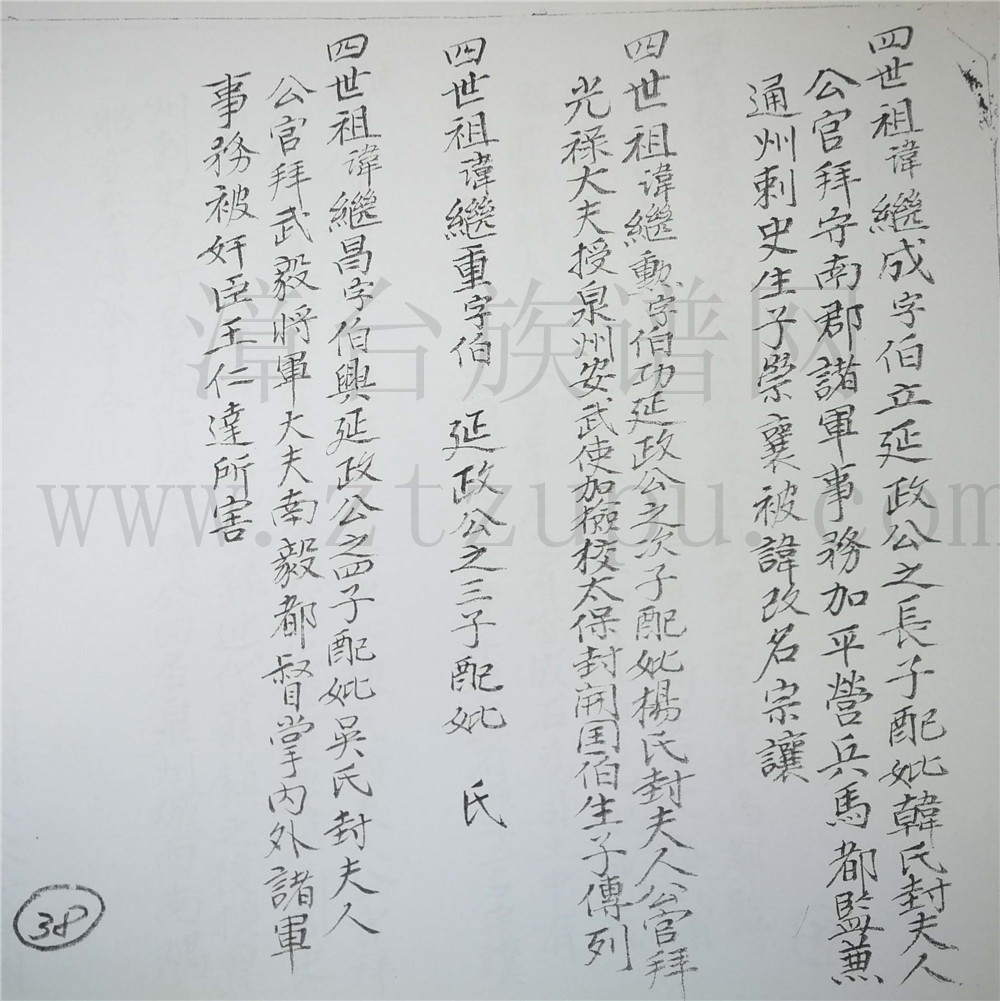 四世祖諱繼成字伯立延政公之長子配妣韓氏封夫人
公官拜守南郡諸軍事務加平營兵馬都監兼
通州刺史生子榮襄被諱改名宗讓
四世祖諱繼勲字伯功延政公之次子配妣楊氏封夫人公官拜
光祿大夫授泉州安武使加檢校太保封開国伯生子傳列
四世祖諱繼重字伯 延政公之三子配妣 氏
四世祖諱繼昌字伯興延政公之四子配妣吳氏封夫人
公官拜武毅將軍大夫南毅都督掌内外諸軍
事務被奸臣王仁達所害
38
漳台族谱网
www.ztzupu.com